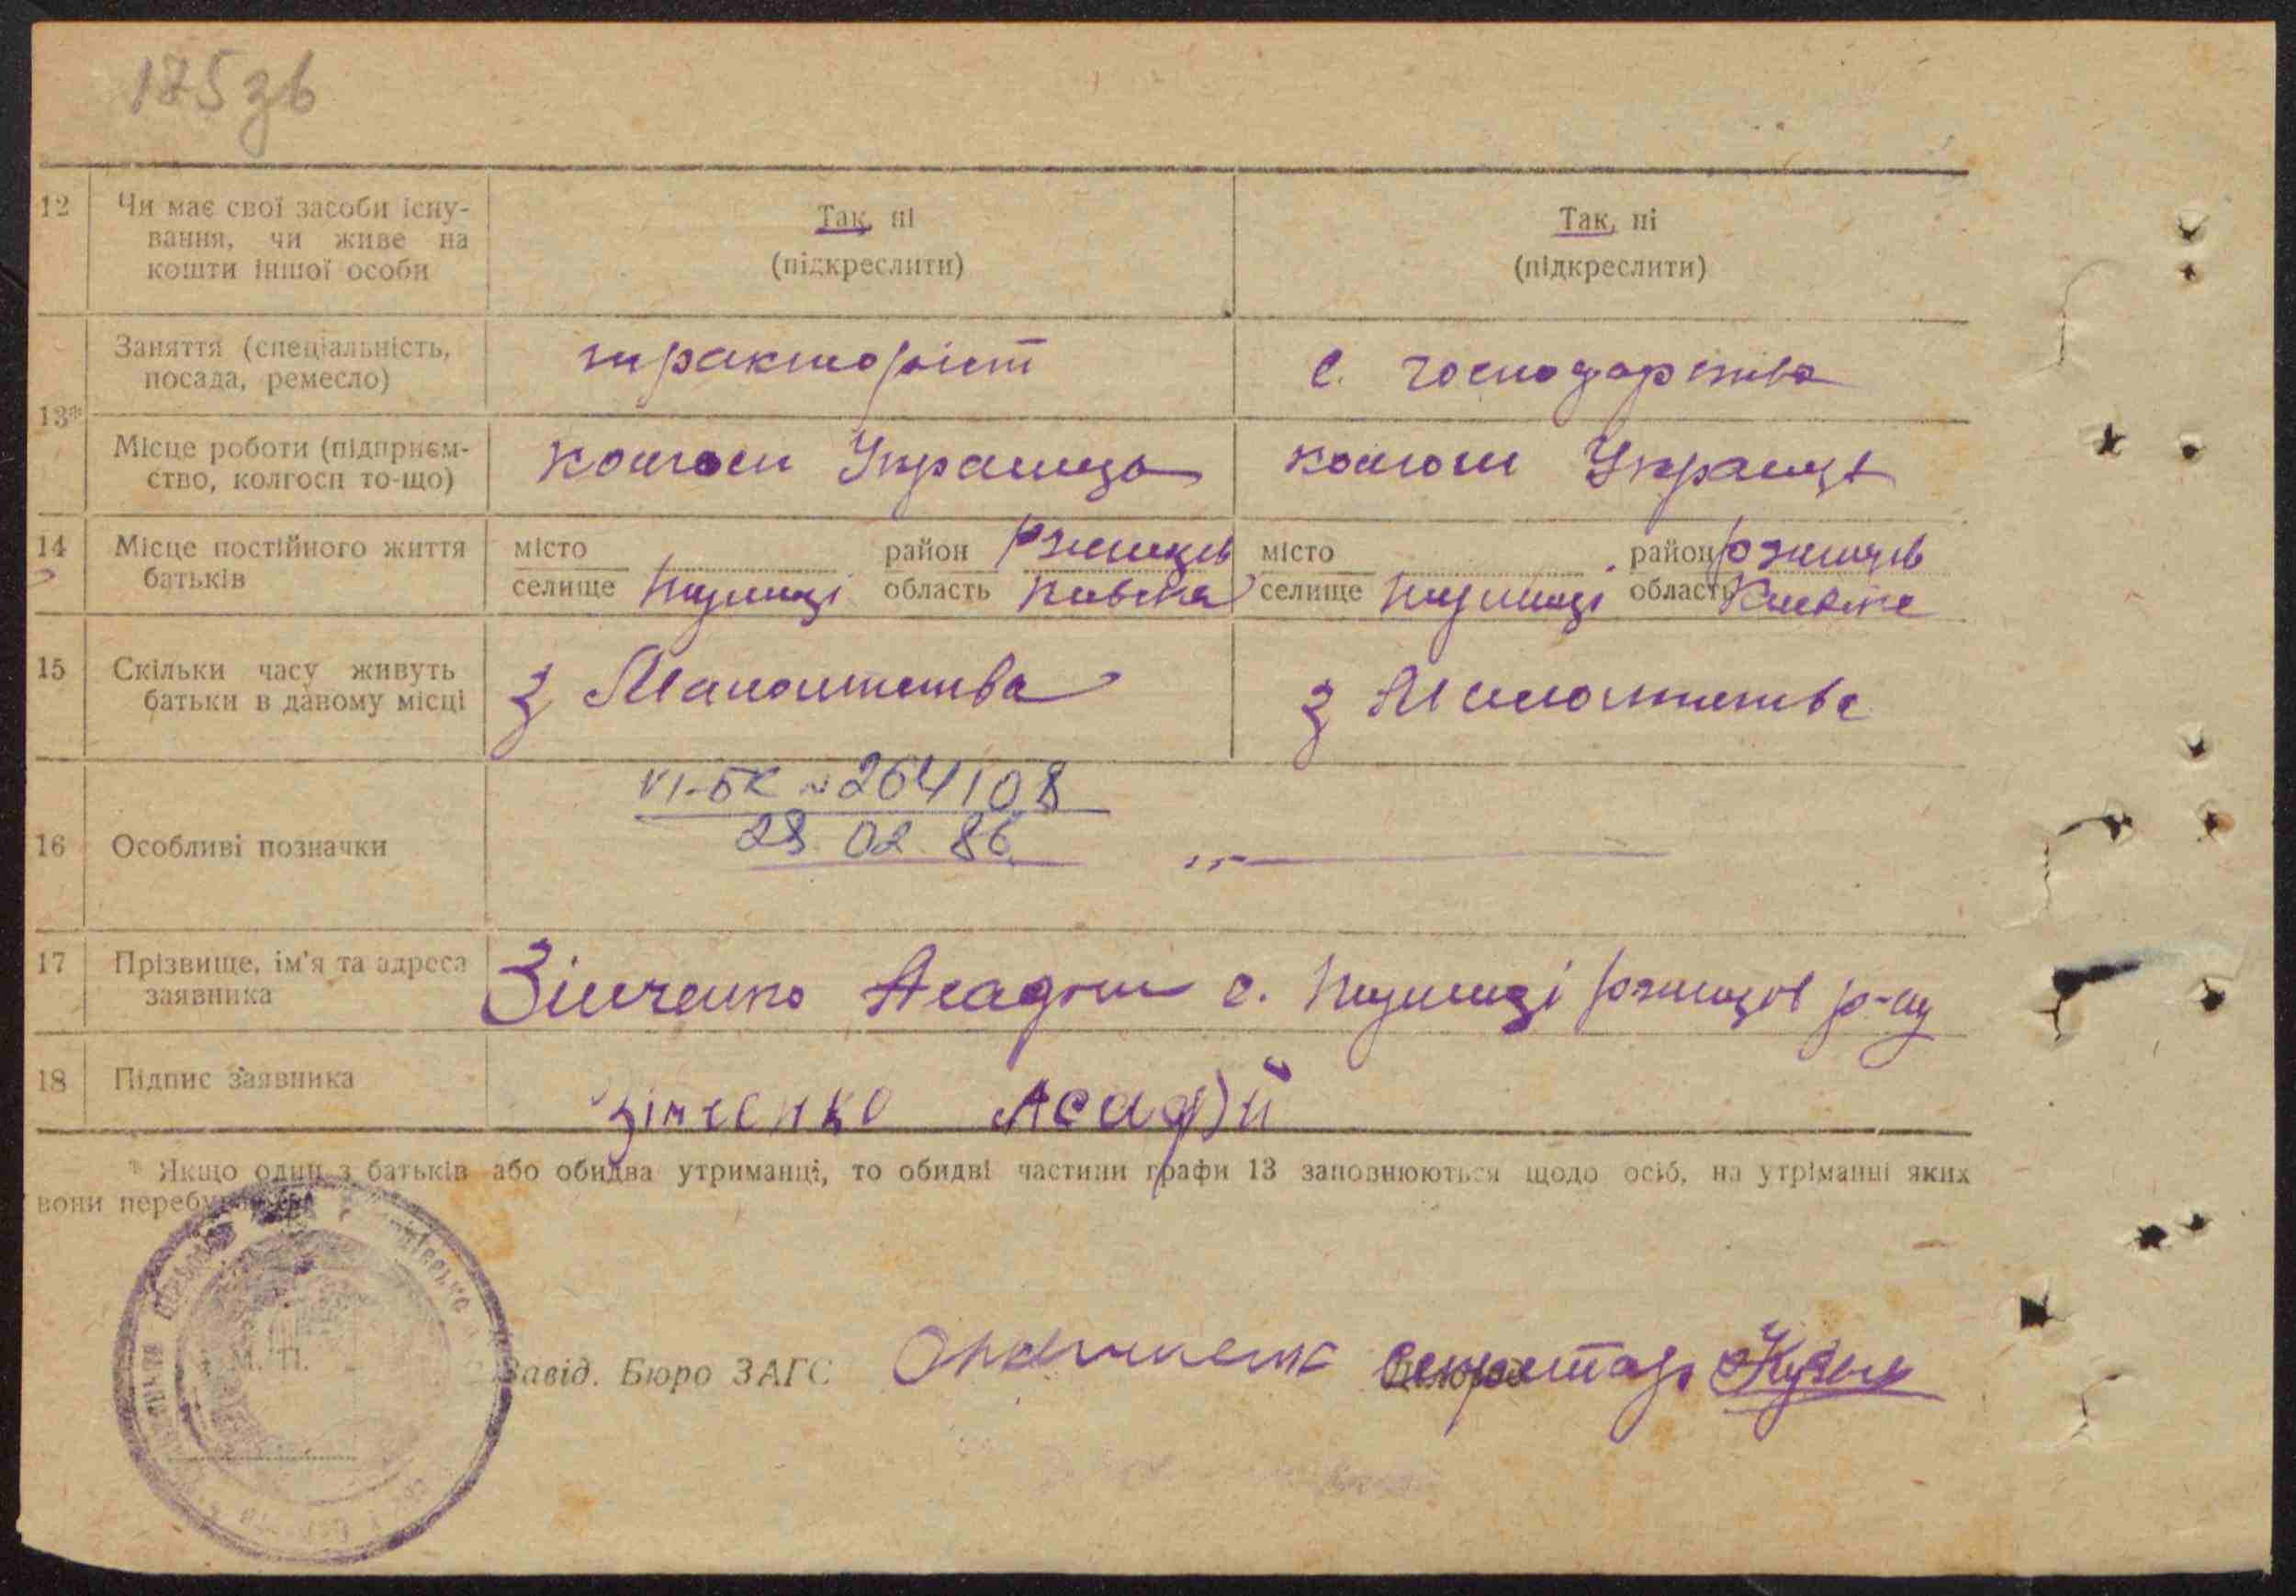 125 зв
12 Чи має свої засоби існу-
вання, чи живе на
кошти іншої особи
Так, ні
(підкреслити)
Так, ні
(підкреслити)
13*
Заняття (спеціальність,
посада, ремесло)
тракторіст
с. господарства
Місце роботи (підприєм-
ство, колгосп то-що)
колгосп Українца
колгосп Українц
14 Місце постійного життя
батьків
місто район Ржищів
селище область Київська
місто район Ржищів
селище область Київська
15 Скільки часу живуть
батьки в даному місці
З Малолітства
З Малолітства
16 Особливі позначки
VI-БК № 264108
28 02 86
17 Прізвище, ім'я та адреса
заявника
Зінченко Асадфій с. Ржищів р-ну
18 Підпис заявника
Зінченко Асадфій
* Якщо один з батьків або обидва утриманці, то обидві частини графи 13 заповнюються щодо осіб, на утріманні яких
вони перебувають
М. П.
Завід. Бюро ЗАГС
секретар